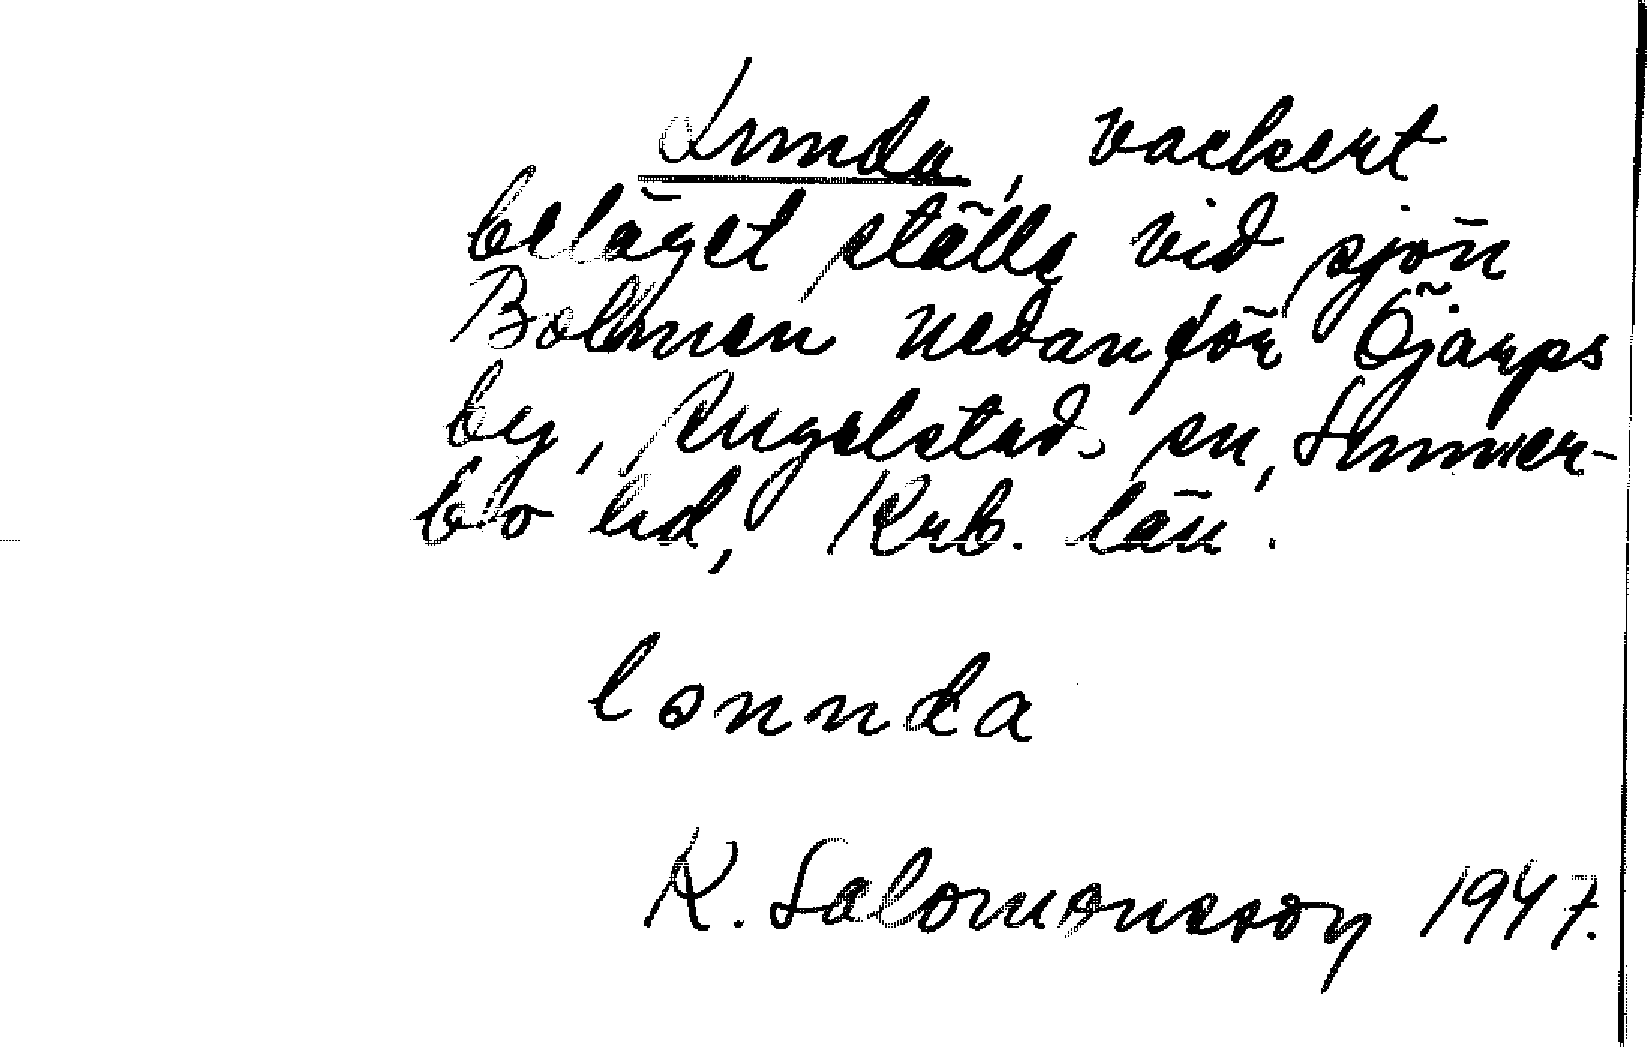 Lunda, vackert
beläget ställe vid sjön
Bolmen nedanför Öjarps
by, Angelstads sn, Sunner-
bo hd, Krb. län.
lonnda
K. Salomonsson 1947.